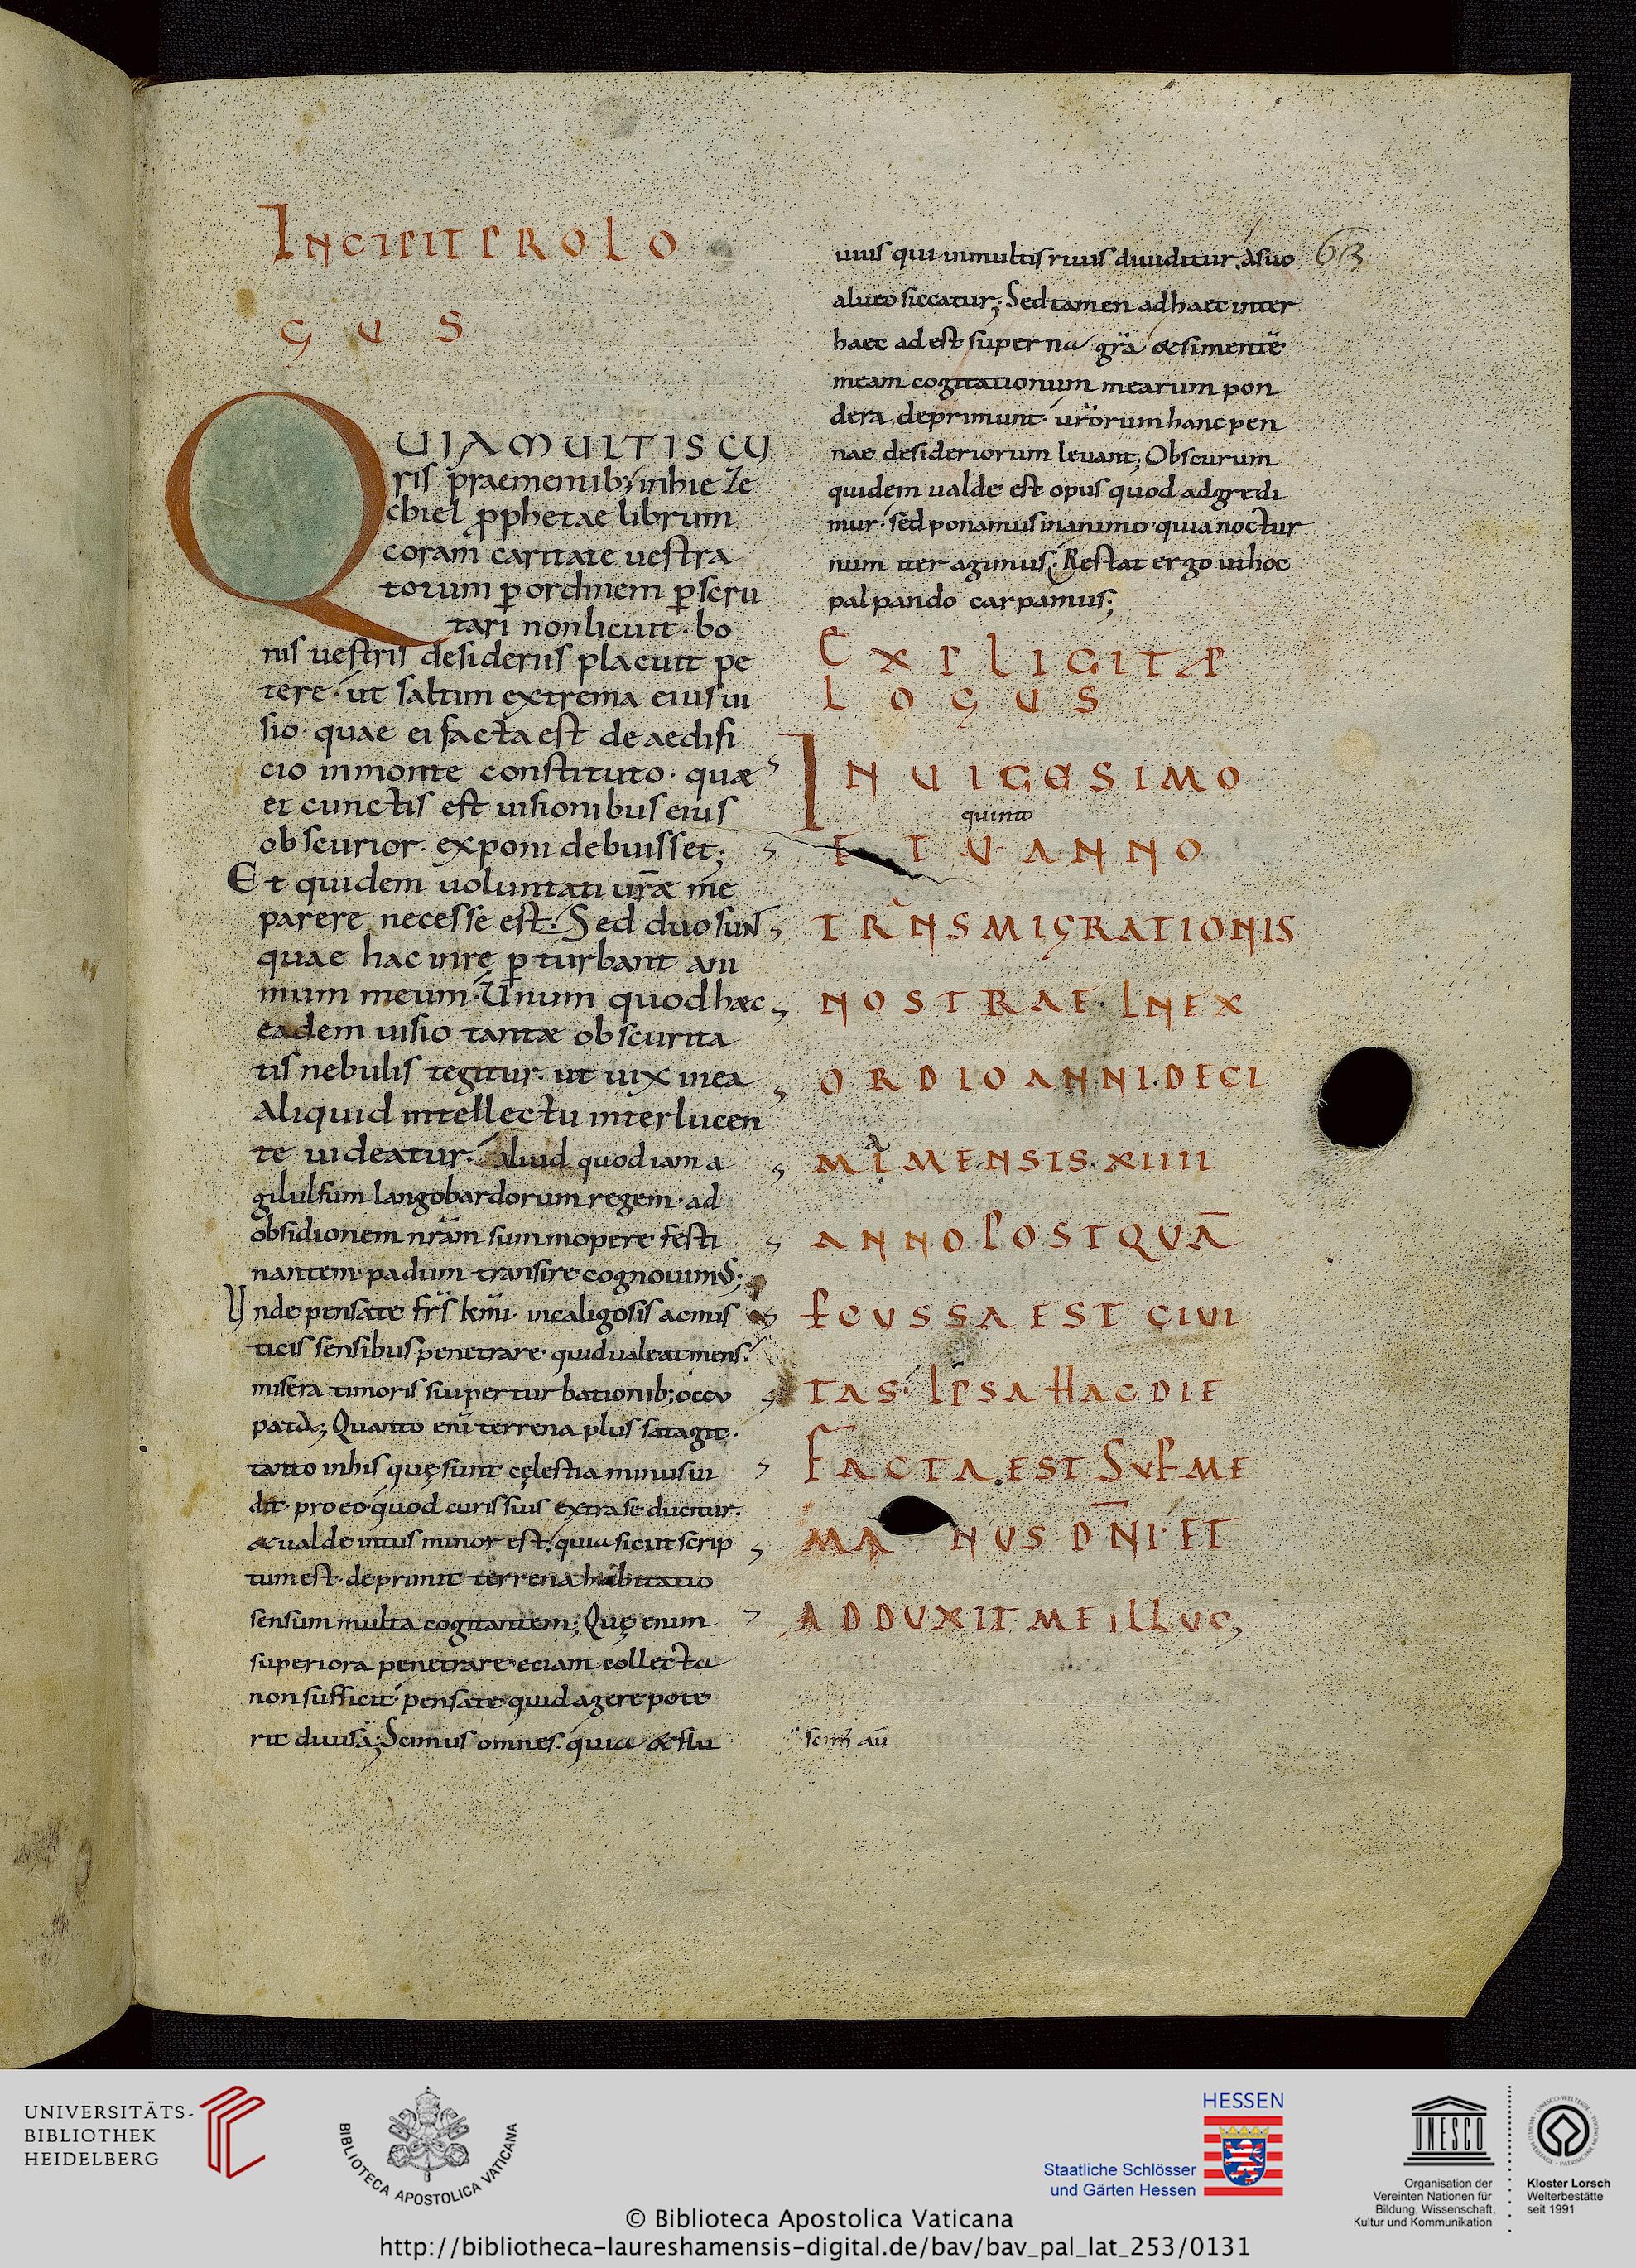 INCIPIT PROLO
GUS
QUIA MULTIS CU
ris praementib; inhieze
chiel ꝓphetae librum
coram caritate uestra
totum ꝑ ordinem ꝑscru
tari non licuit. bo
nis uestris desideriis placuit pe
tere. ut saltim extrema eius ui
sio. quae ei facta est de aedifi
cio in monte constituto. quae
et cunctis est uisionibus eius
obscurior. exponi debuisset;
Et quidem uoluntati ur̄ae me
parere necesse est. Sed duo sunt
quae hac in re ꝑturbant ani
mum meum. Unum quod haec
eadem uisio tantae obscurita
tis nebulis tegitur. ut uix in ea
aliquid intellectu interlucen
te uideatur. Aliud quod iam a
gilulfum langobardorum regem. ad
obsidionem nr̄am summopere festi
nantem padum transire cognouimus;
Unde pensate fr̄s kmi. in caligosis ac mis
ticis sensibus penetrare quid ualeat mens.
misera timoris sui perturbationib; occu
pata; Quanto eni̅ terrena plus satagit.
tanto in his quę sunt cęlestia minus ui
dit. pro eo quod curis suis extra se ducitur.
& ualde intus minor est. quia sicut scrip
tum est. deprimit terrena habitatio
sensum multa cogitantem; Quę enim
superiora penetrare eciam collecta
non sufficit. pensate quid agere pote
rit diuisa; Scimus omnes. quia & flu
uius qui in multis riuis diuiditur. a suo
63
alueo siccatur; Sed tamen ad haec inter
haec adest superna gr̄a & si mente̅
meam cogitationum mearum pon
dera deprimunt. ur̄orum hanc pen
nae desideriorum leuant; Obscurum
quidem ualde est opus quod adgredi
mur. sed ponamus in animo quia noctur
num iter agimus. Restat ergo ut hoc
palpando carpamus;
EXPLICIT PR
LOGUS
IN UICESIMO
quinto
ET V ANNO
TRANSMIGRATIONIS
NOSTRAE. IN EX
ORDIO ANNI. DECI
MA MENSIS. XIIII
ANNO POSTQUA̅
PCUSSA EST CIUI
TAS. IPSA HAC DIE
FACTA EST SUP ME
MANUS DN̅I. ET
ADDUXIT ME ILLUC,
UNIVERSITÄTS-
BIBLIOTHEK
HEIDELBERG
BIBLIOTECA APOSTOLICA VATICANA
HESSEN
Staatliche Schlösser
und Gärten Hessen
UNESCO
Organisation der
Vereinten Nationen für
Bildung, Wissenschaft,
Kultur und Kommunikation
Kloster Lorsch
Welterbestätte
seit 1991
© Biblioteca Apostolica Vaticana
http://bibliotheca-laureshamensis-digital.de/bav/bav_pal_lat_253/0131